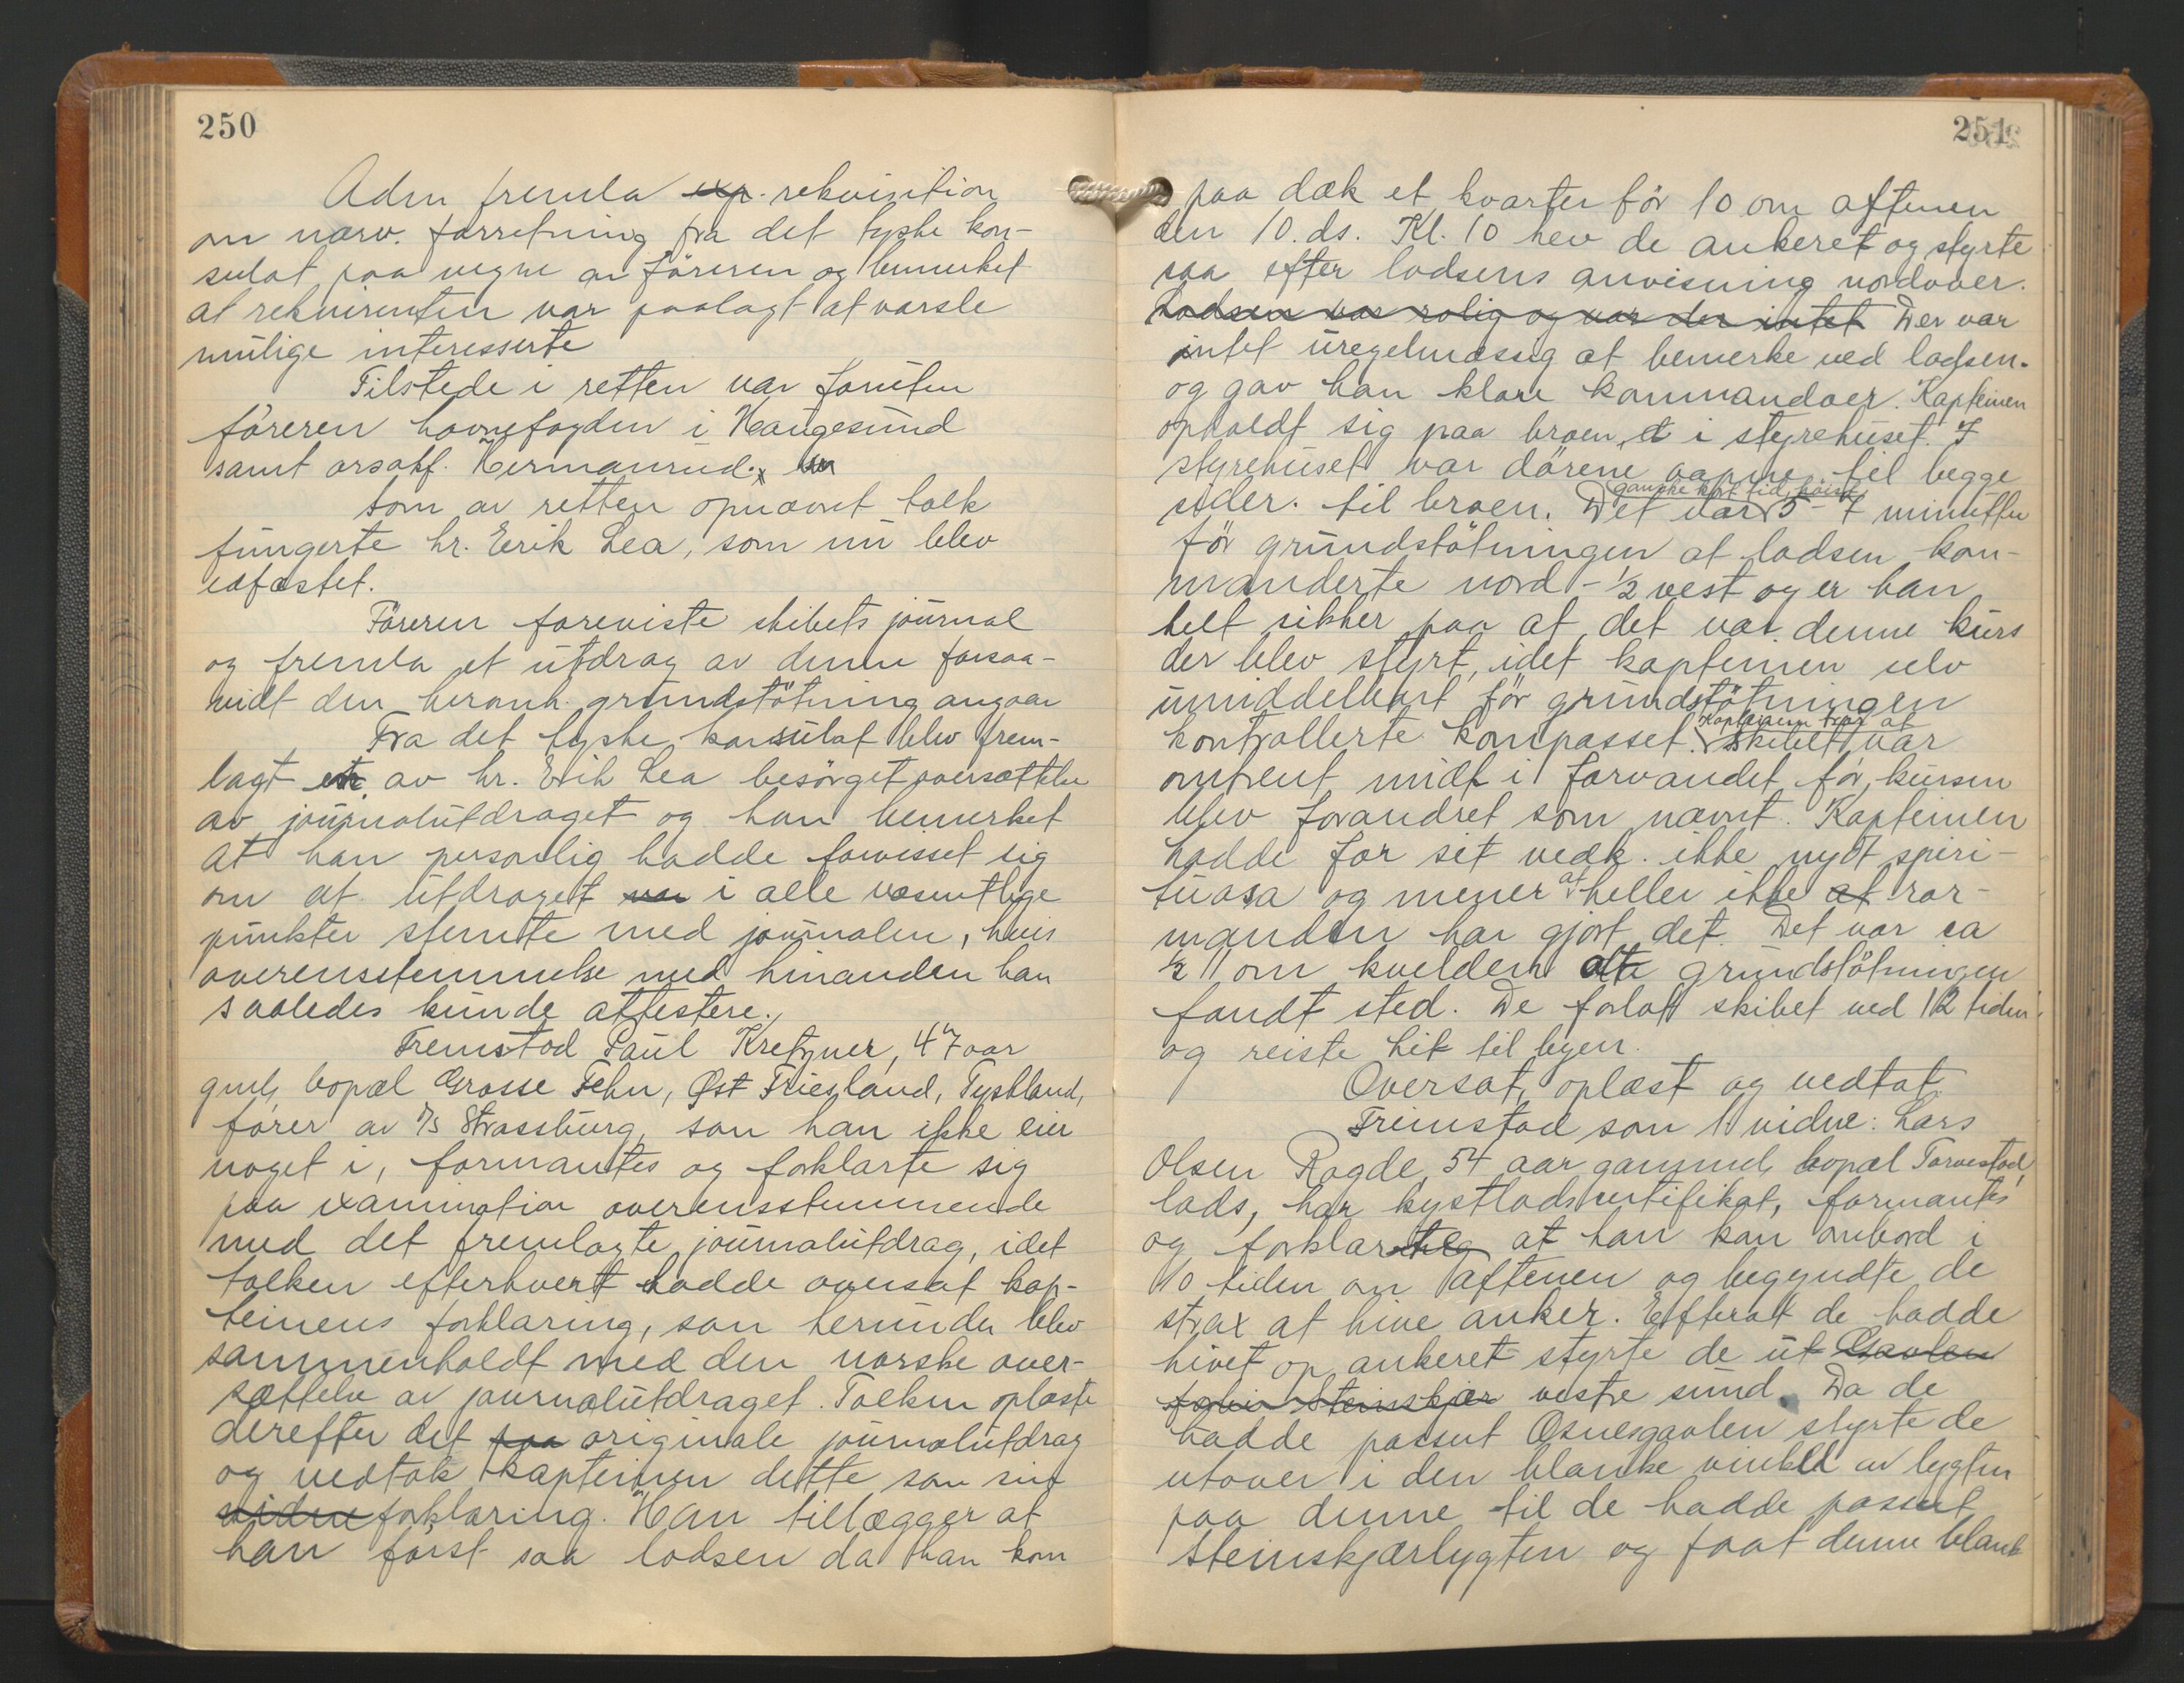 250
Adm fremla exp. rekvisition
om nærv. forretning fra det tyske kon-
sulat paa vegne av föreren og bemerket
at rekvirenten var paalagt at varsle
mulige interesserte
Tilstede i retten var foruten
föreren havnefogden i Haugesund
samt orsakf. Hermansrud.
Som av retten opnævnt tolk
fungerte hr. Eerik Lea, som nu blev
edfæstet.
Föreren foreviste skibets journal
og fremla et utdrag av denne forsaa-
vidt den heromh. grundstötning angaar
Fra det tyske konsulat blev frem-
lagt en av hr. Erik Lea besörget oversættelse
av journalutdraget og han bemerket
at han personlig hadde forvisset sig
om at utdraget var i alle væsentlige
punkter stemte med journalen, hvis
overensstemmelse med hinanden han
saaledes kunde attestere.
Fremstod Paul Kretzner, 47 aar
gml, bopæl Grosse Fehn, Øst Friesland, Tyskland,
förer av D/S Strassburg, som han ikke eier
noget i, formantes og forklarte sig
paa examination overensstemmende
med det fremlagte journalutdrag, idet
tolken efterhvert hadde oversat kap-
teinens forklaring, som herunder blev
sammenholdt med den norske over-
sættelse av journalutdraget. Tolken oplæste
derefter det paa originale journalutdrag
og vedtok kapteinen dette som sin
vidne forklaring. Han tillægger at
han först saa lodsen da han kom
251
paa dæk et kvarter för 10 om aftenen
den 10. ds. Kl. 10 hev de ankeret og styrte
saa efter lodsens anvisning nordover.
Lodsen var rolig og var der intet Der var
intet uregelmæssig at bemerke ved lodsen.
og gav han klare kommandoer. Kapteinen
opholdt sig paa broen, et i styrehuset. I
styrehuset var dörene aapne til begge
sider. til broen. Det var ganske kort tid, höist 5-7 minutter
för grundstötningen at lodsen kom-
manderte nord-½ vest og er han
helt sikker paa at det var denne kurs
der blev styrt, idet kapteinen selv
umiddelbart för grundstötningen
kontrollerte kompasset. Kapteinen tror at skibet var
omtrent midt i farvandet för kursen
blev forandret som nævnt. Kapteinen
hadde for sit vedk. ikke nydt spiri-
tuosa og mener at heller ikke at ror-
manden har gjort det. Det var ca
½ 11 om kvelden at grundstötningen
fandt sted. De forlot skibet ved 12 tiden
og reiste hit til byen.
Oversat, oplæst og vedtat
Fremstod som 1 vidne: Lars
Olsen Ragde, 54 aar gammel, bopæl Torvestad,
lods, har kystlodscertifikat, formantes
og forklarte at han kom ombord i
10 tiden om aftenen og begyndte de
strax at hive anker. Efterat de hadde
hivet op ankeret styrte de ut Gavlen
forbi Steinskjær vestre sund. Da de
hadde passert Osnesgavlen styrte de
utover i den blanke vinkel av lygten
paa denne til de hadde passert
Steinskjærlygten og faat denne blank